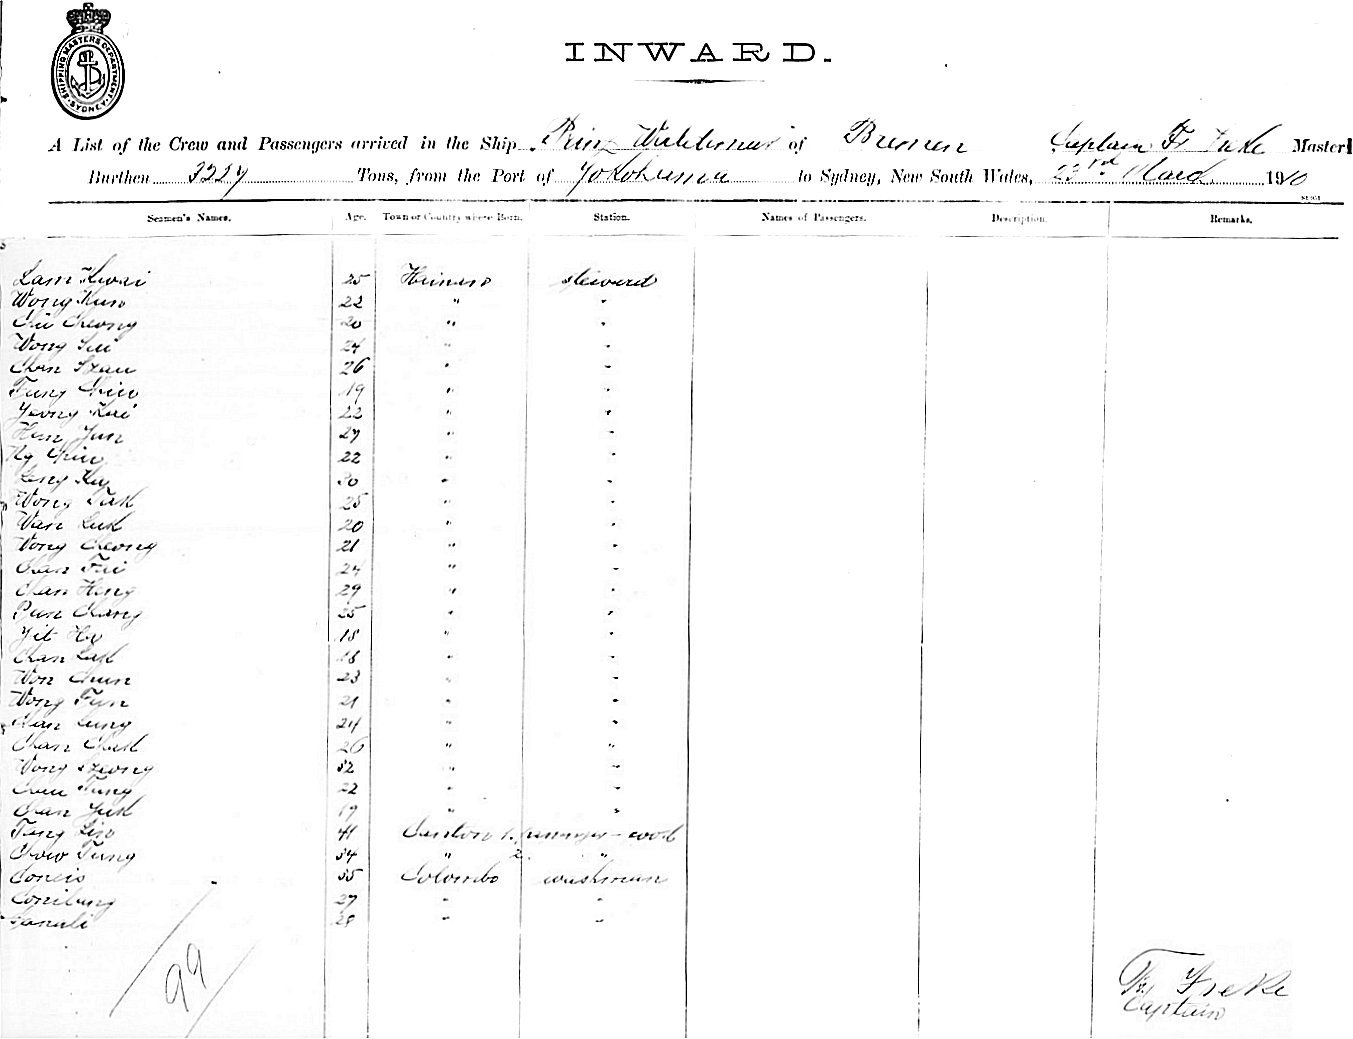 SHIPPING MASTERS DEPARTMENT
SYDNEY
INWARD.
A List of the Crew and Passengers arrived in the Ship Prinz Waldemar of Bremen Captain Fr. Master
Burthen 3227 Tons, from the Port of Yokohama to Sydney, New South Wales, 23rd March 1910
Seamen's Names. Age. Town or Country where Born. Station. Names of Passengers. Description. Remarks.
Lam Kwai 25 steward
Wong Kun 22 " "
Chü Cheong 20 " "
Wong Sui 24 " "
Chan Szau 26 " "
Tung Chin 19 " "
Yeong Kai 22 " "
Hen Yun 27 " "
Ng Chin 22 " "
Leng 30 " "
Wong Tak 25 " "
Wan Luk 20 " "
Wong Cheong 21 " "
Chan Tai 24 " "
Chan Heng 29 " "
Pun Chang 25 " "
Yit Ho 18 " "
Chan Luk 18 " "
Won Chun 23 " "
Wong Fun 21 " "
Chan Lung 24 " "
Chan Chuk 26 " "
Wong Szeong 32 " "
Chau Tung 22 " "
Chan Yuk 19 " "
Tang Lin 41 Canton 1. passenger-cook
Chow Tung 34 " 2. "
35 Colombo washman
27 " "
28 " "
99
Fr. Freke
Captain